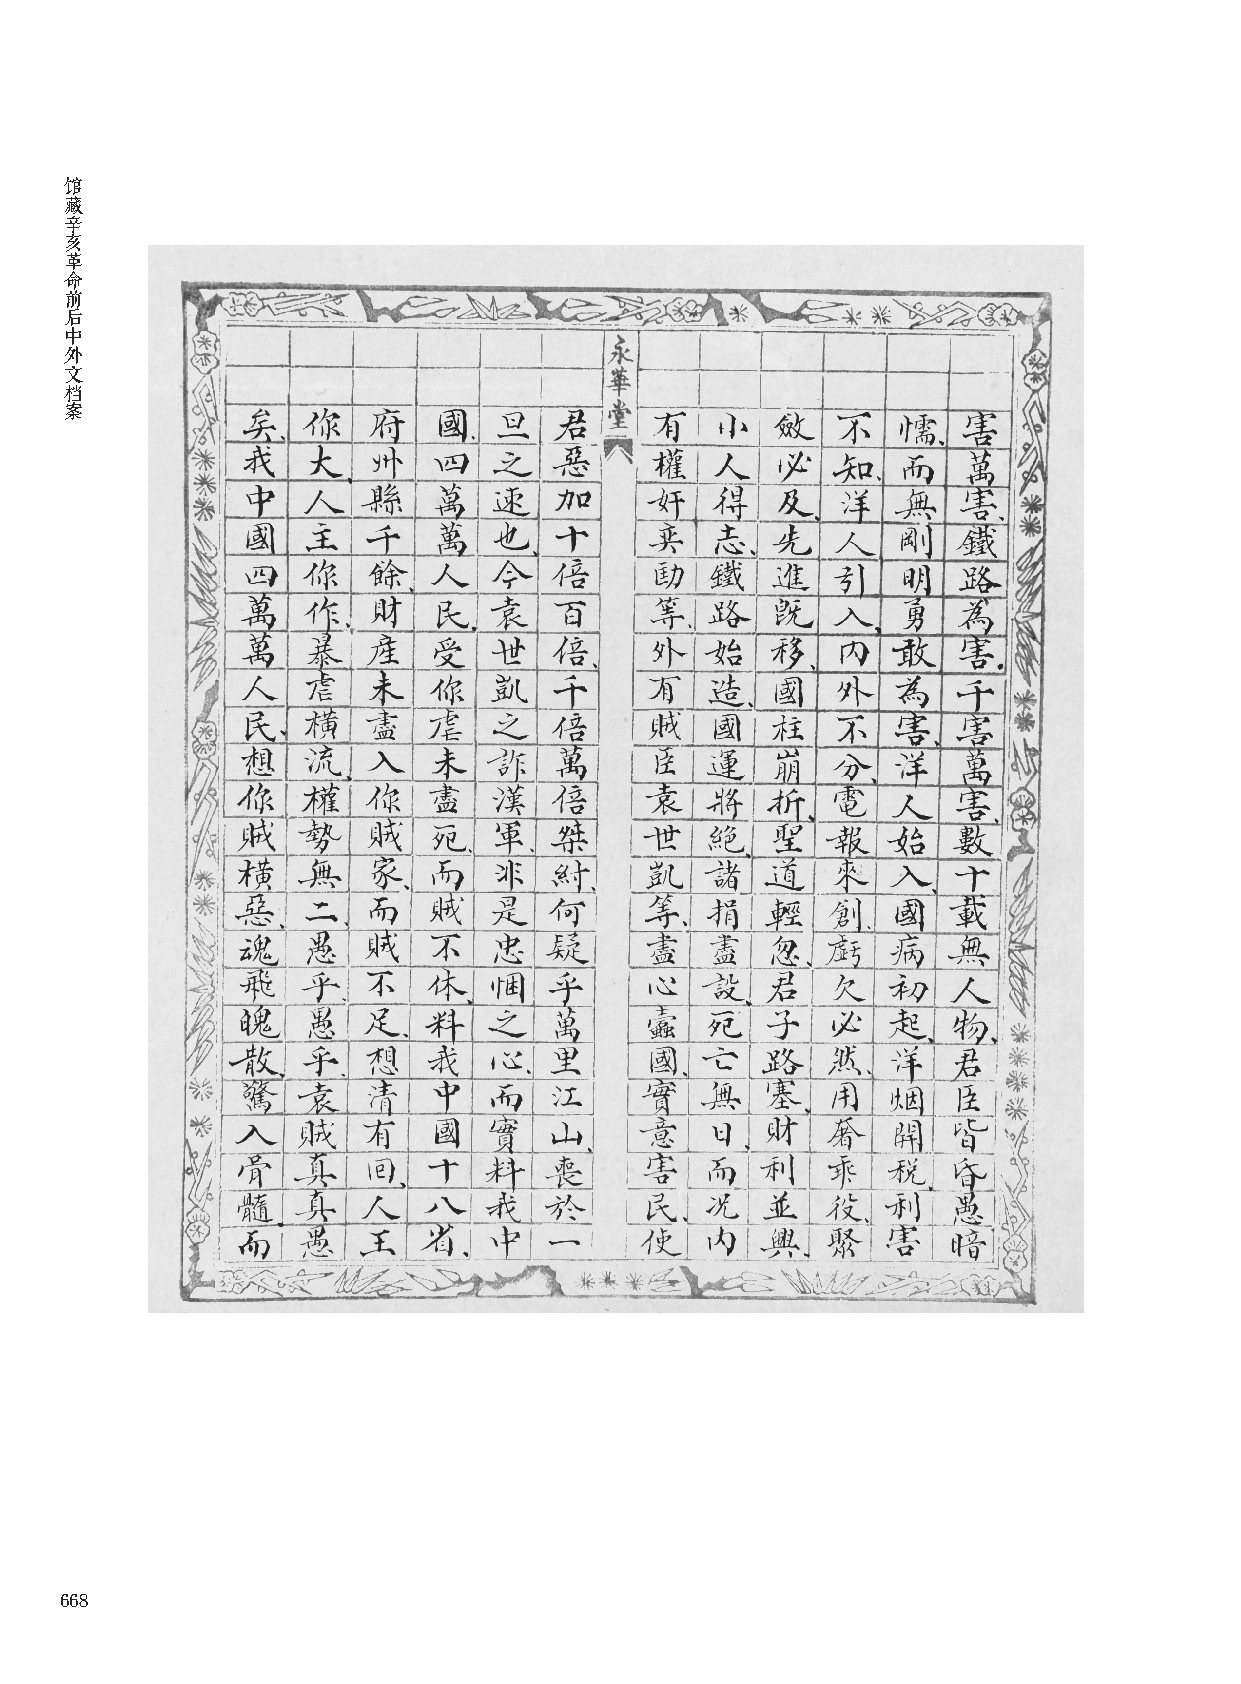 馆藏辛亥革命前后中外文档案
害萬害、鐵路為害、千害萬害、數十載無人物、君臣皆昏愚、暗
懦、而無剛明勇敢為害、洋人始入、國病初起、洋烟開稅、利害
不知、洋人引入、內外不分、電報來創、虧欠必然、用奢乘役、聚
斂必及、先進既移、國柱崩折、聖道輕忽、君子路塞、財利並興、
小人得志、鐵路始造、國運將絕、諸捐盡設、死亡無日、而況內
有權奸奕劻等、外有賊臣袁世凱等、盡心蠹國、實意害民、使
永華堂
君惡加十倍百倍、千倍萬倍桀紂、何疑乎萬里江山、喪於一
旦之速也、今袁世凱之詐漢軍、非是忠悃之心、而實料我中
國、四萬萬人民、受你虐未盡死、而賊不休、料我中國十八省、
府州縣千餘、財產未盡入你賊家、而賊不足、想清有囘、人王
你大、人主你作、暴虐橫流、權勢無二、愚乎、愚乎、袁賊真真愚
矣、我中國四萬萬人民、想你賊橫惡、魂飛魄散、驚入骨髓、而
668